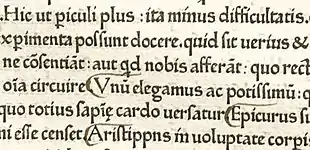 .Hic ut ꝑiculi plus : ita minus difficultatis.
xꝑimenta possunt docere. quid sit uerius &
ne cōsentiāt: aut qd nobis afferāt: quo rect
oīa circuire Vnū elegamus ac potissimū: q
quo totius sapīę cardo uersatur Epicurus su
ni esse censet Aristippns in uoluptate corpis